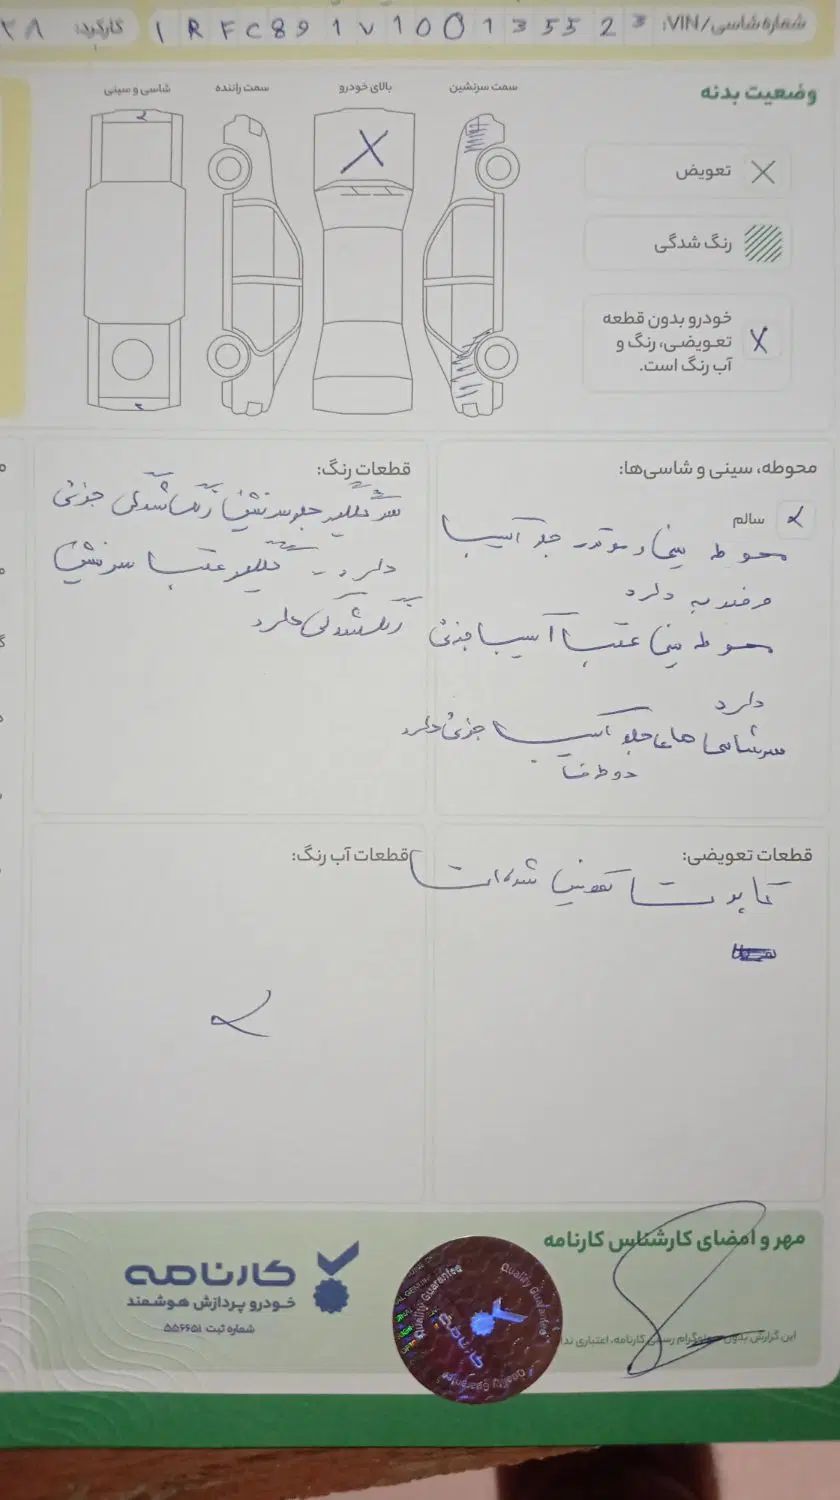 شماره شاسی/VIN: IRFC891V100135523
کارکرد:
وضعیت بدنه
سمت سرنشین
بالای خودرو
سمت راننده
شاسی و سینی
تعویض
رنگ شدگی
خودرو بدون قطعه
تعویضی، رنگ و
آب رنگ است.
محوطه، سینی و شاسی‌ها:
سالم
محوطه سینی جلو آسیب
دارد
محوطه سینی عقب آسیب جزئی
دارد
سرشاسی های جلو آسیب جزئی دارد
قطعات رنگ:
گلگیر جلو سرنشین رنگ شدگی جزئی
دارد - گلگیر عقب سرنشین
رنگ شدگی دارد
قطعات تعویضی:
کاپوت تعویض شده است
قطعات آب رنگ:
مهر و امضای کارشناس کارنامه
این گزارش بدون هولوگرام رسمی کارنامه، اعتباری ندا
کارنامه
خودرو پردازش هوشمند
شماره ثبت: ۵۵۶۶۵۱
Quality Guarantee
کارنامه